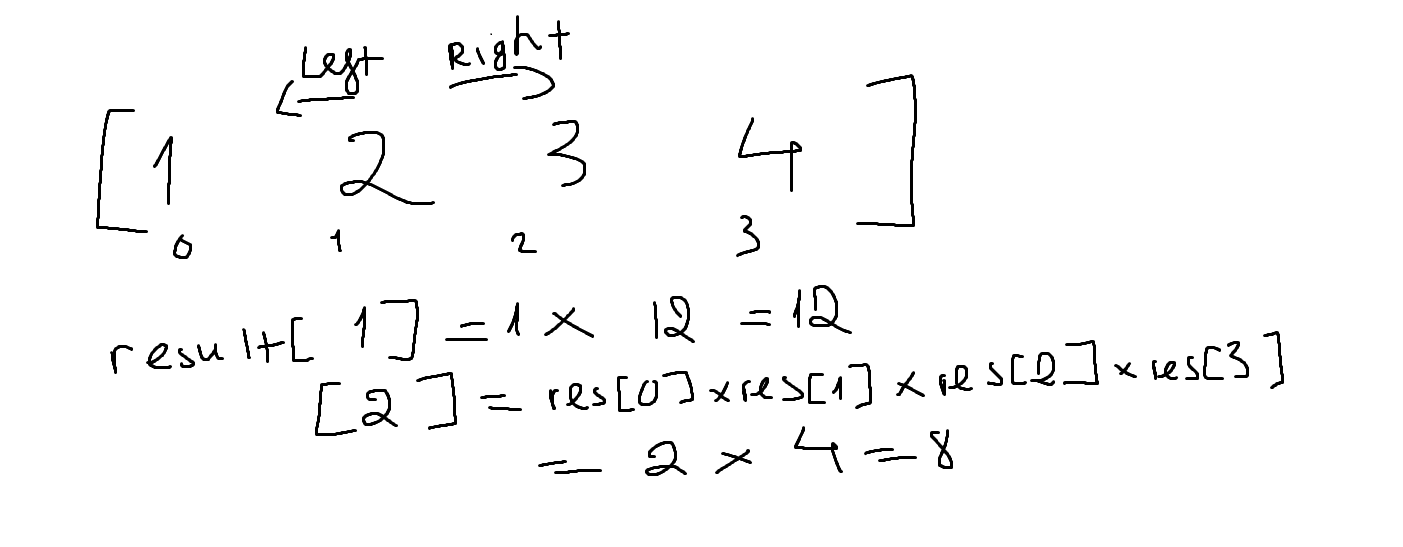 Left Right
[1 2 3 4]
0 1 2 3
result[1] = 1 × 12 = 12
[2] = res[0] × res[1] × res[2] × res[3]
= 2 × 4 = 8